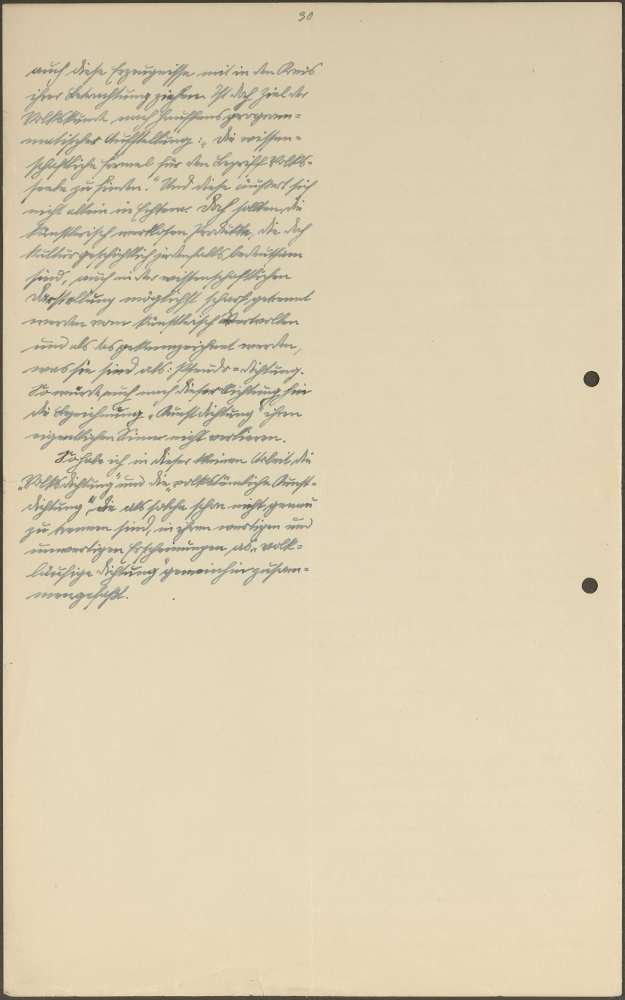 30
auch diese Erzeugnisse mit in den Kreis
ihrer Betrachtung ziehen. Ist doch Ziel der
Volkskunde nach Hauffens program-
matischer Aufstellung: „die wissen-
schaftliche Formel für den Begriff Volks-
seele zu finden.“ Und diese äußert sich
nicht allein in Echtem. Doch sollten, die
künstlerisch wertlosen Produkte, die doch
kulturgeschichtlich jedenfalls bedeutsam
sind, auch in der wissenschaftlichen
Darstellung möglichst scharf getrennt
werden vom künstlerisch Wertvollen
und als das gekennzeichnet werden,
was sie sind als: Pseudo-Dichtung.
So würde auch nach dieser Richtung hin
die Bezeichnung „Kunstdichtung“ ihren
eigentlichen Sinn nicht verlieren.
So habe ich in dieser kleinen Arbeit, die
„Volksdichtung“ und die „volkstümliche Kunst-
dichtung“, die als solche schon nicht genau
zu trennen sind, in ihren wertigen und
unwertigen Erscheinungen, als „volk-
läufige Dichtung“ gemeinhin zusam-
mengefaßt.